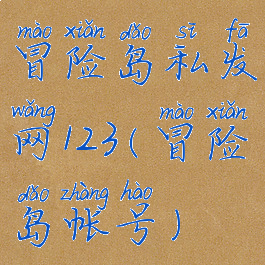 mào xiǎn dǎo sī fā
冒险岛私发
wǎng mào xiǎn
网123(冒险
dǎo zhàng hào
岛帐号)